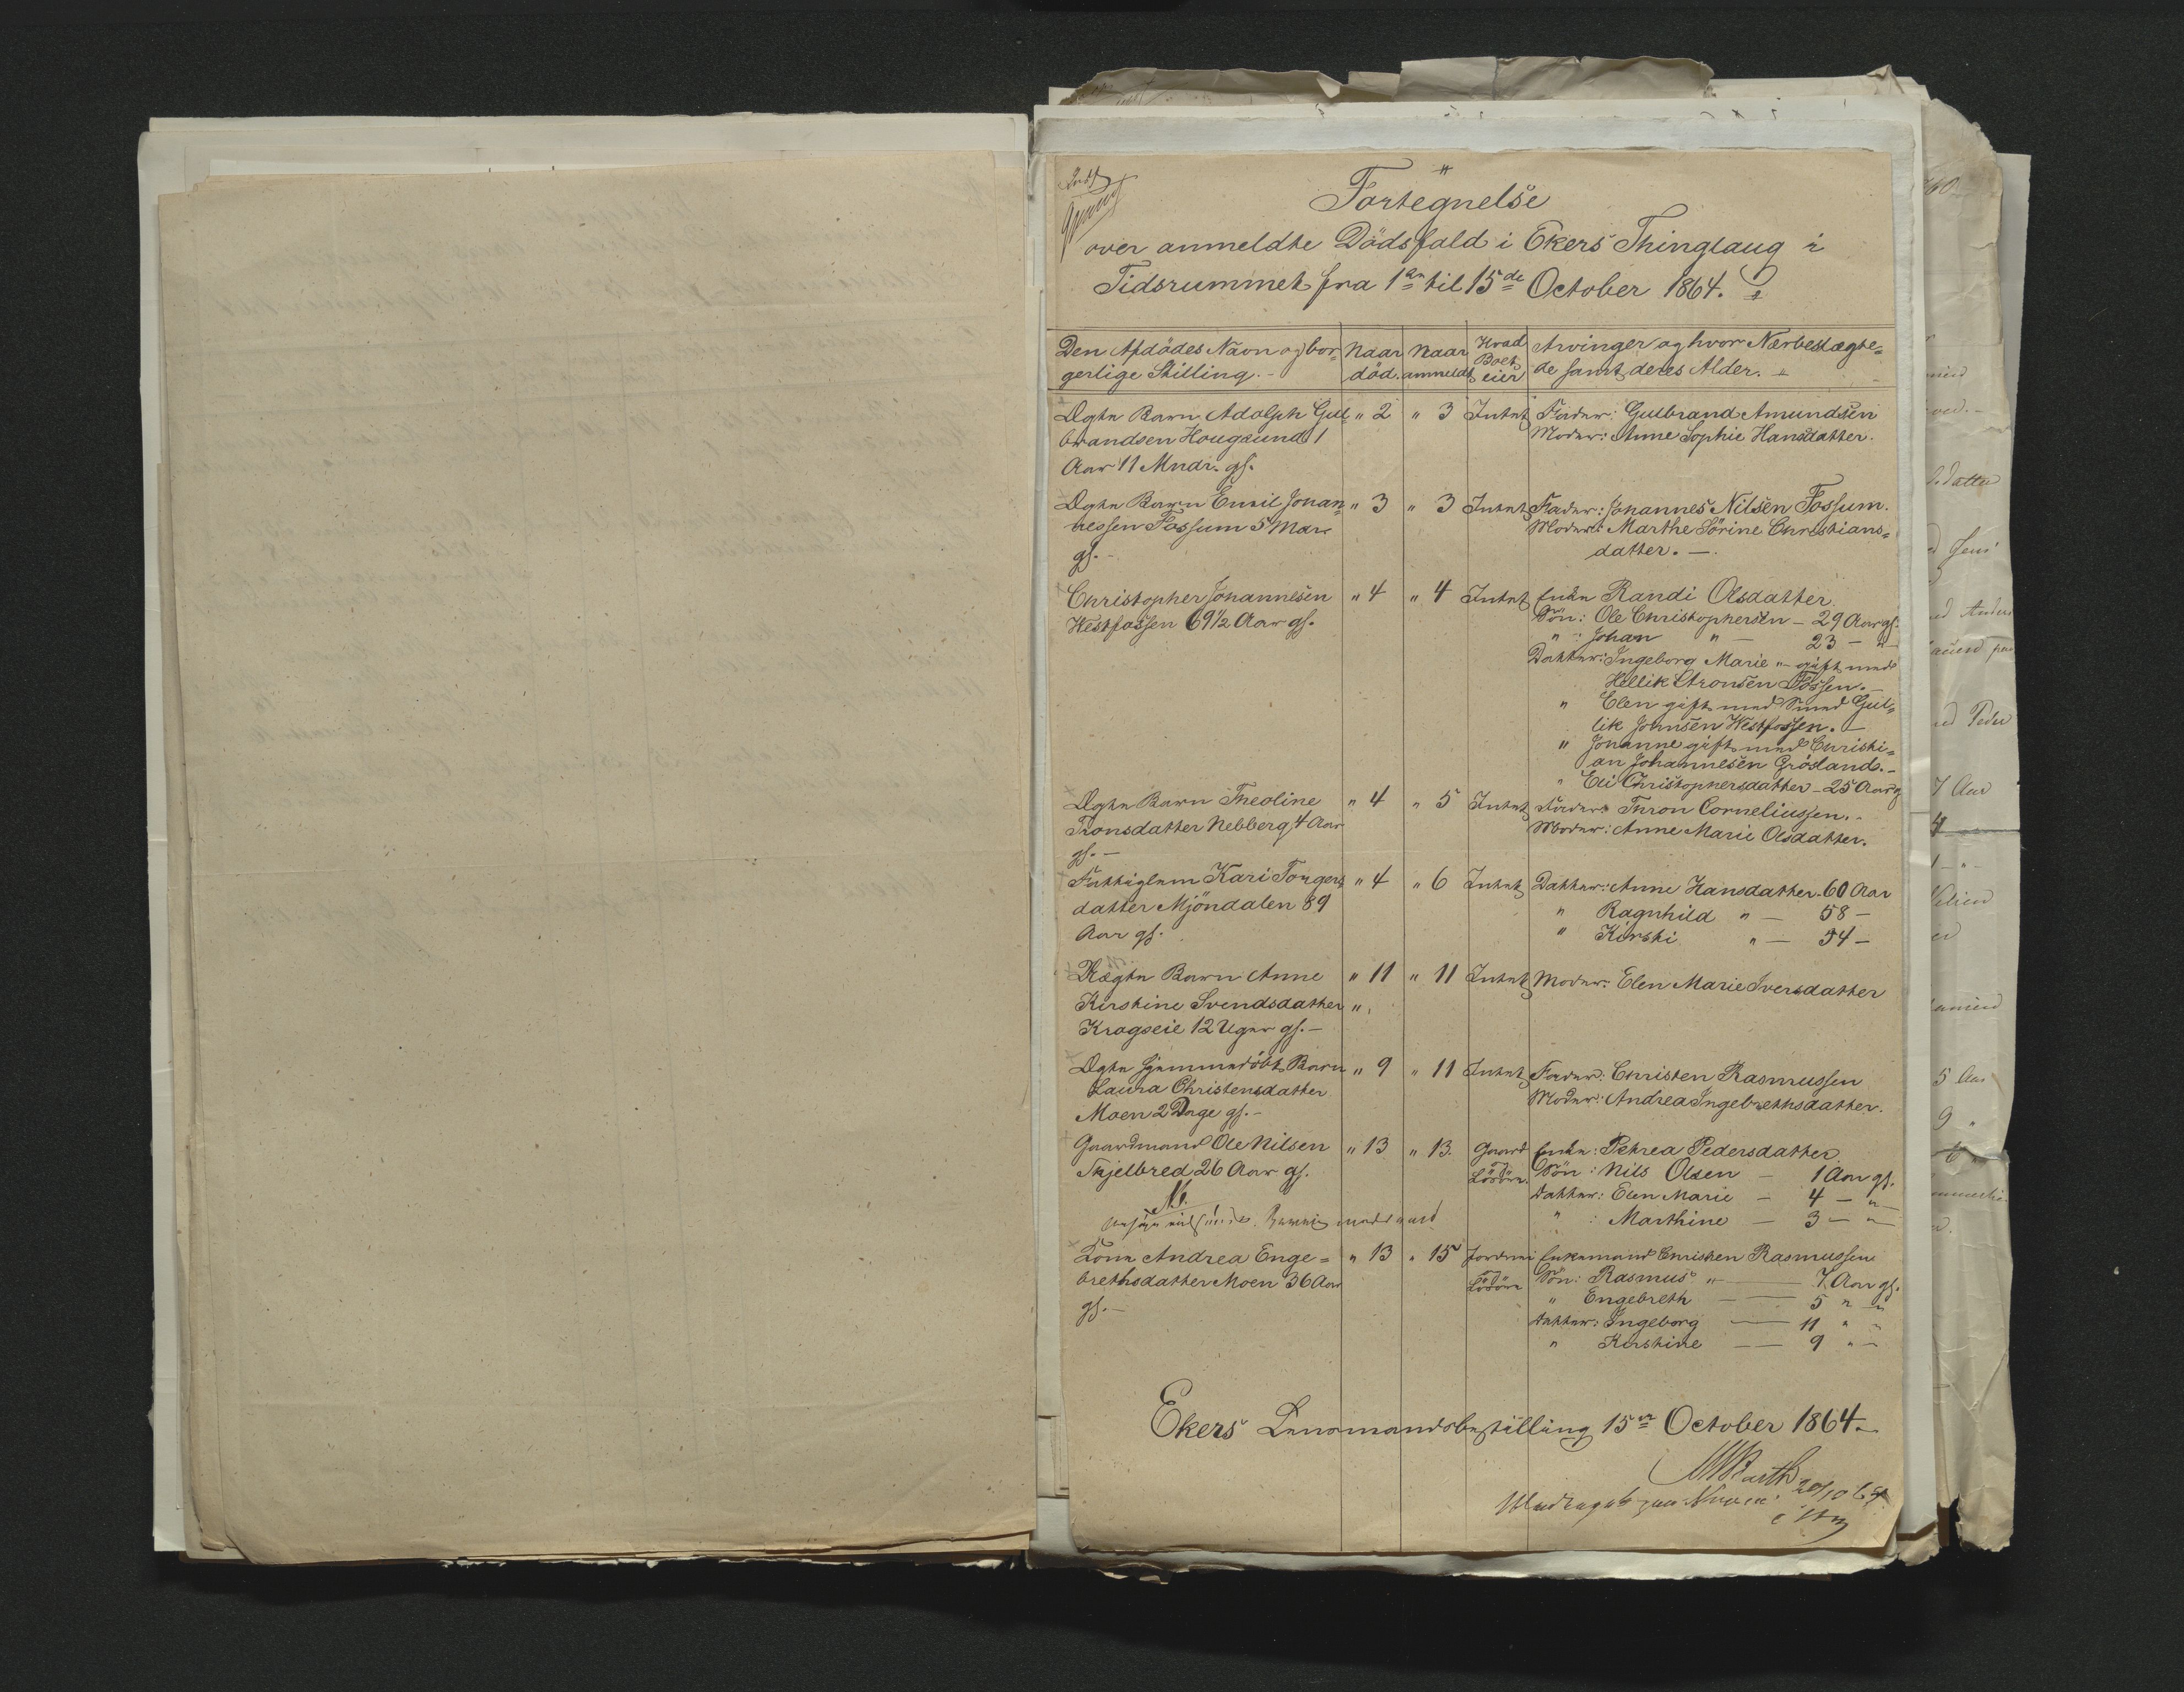 Fortegnelse
over anmeldte Dödsfald i Ekers Thinglaug i
Tidsrummet fra 1ste til 15de October 1864.
Den Afdödes Navn og bor= Naar Naar Hvad Arvinger og hvor Nærbeslægte=
gerlige Stilling. död. anmeldt Boet eier de samt deres Alder.
Ægte Barn Adolph Gul= " 2 " 3 Intet Fader: Gulbrand Amundsen
brandsen Hougsund 1 Moder: Anne Sophie Hansdatter.
Aar 11 Mndr. gl.
Ægte Barn Emil Johan= " 3 " 3 Intet Fader: Johannes Nilsen Fossum.
nessen Fossum 5 Mdr. Moder: Marthe Sörine Christians=
gl. datter.
Christopher Johannesen " 4 " 4 Intet Enke Randi Olsdatter
Westfossen 69 1/2 Aar gl. Sön: Ole Christophersen – 29 Aar gl.
" : Johan " — 23 — "
Datter: Ingeborg Marie " gift med
Hellik Aronsen Fossen.
" Elen gift med Smed Gul=
lik Johnsen Westfossen.
" Johanne gift med Christi=
an Johannesen Grösland.
" Eli Christophersdatter – 25 Aar g
Ægte Barn Theoline " 4 " 5 Intet Fader: Thron Corneliussen.
Tronsdatter Nebberg 4 Aar Moder: Anne Marie Olsdatter.
gl. —
Fattiglem Kari Torgers= " 4 " 6 Intet Datter: Anne Hansdatter. 60 Aar
datter Mjöndalen 89 " Ragnhild " — 58 —
Aar gl. " Kirsti " — 54 —
Uægte Barn Anne " 11 " 11 Intet Moder: Elen Marie Iversdatter
Kirstine Svendsdatter "
Kragseie 12 Uger gl. —
Ægte hjemmedöbt Barn " 9 " 11 Intet Fader: Christen Rasmussen
Laura Christensdatter Moder: Andrea Ingebrethsdatter.
Moen 2 Dage gl. —
Gaardmand Ole Nilsen " 13 " 13. Gaard Enke: Petrea Pedersdatter
Skjelbred 26 Aar gl. og Lösöre. Sön: Nils Olsen — 1 Aar gl.
Datter: Elen Marie — 4 — "
" : Marthine — 3 — "
Kone Andrea Enge= " 13 " 15 Jordeiend. Enkemand Christen Rasmussen
brethsdatter Moen 36 Aar og Lösöre Sön: Rasmus " — 7 Aar gl.
gl. — " Engebreth — 5 " "
Datter: Ingeborg — 11 " "
" Kirstine — 9 " —
Ekers Lensmandsbestilling 15de October 1864.
Barth
20/10 64